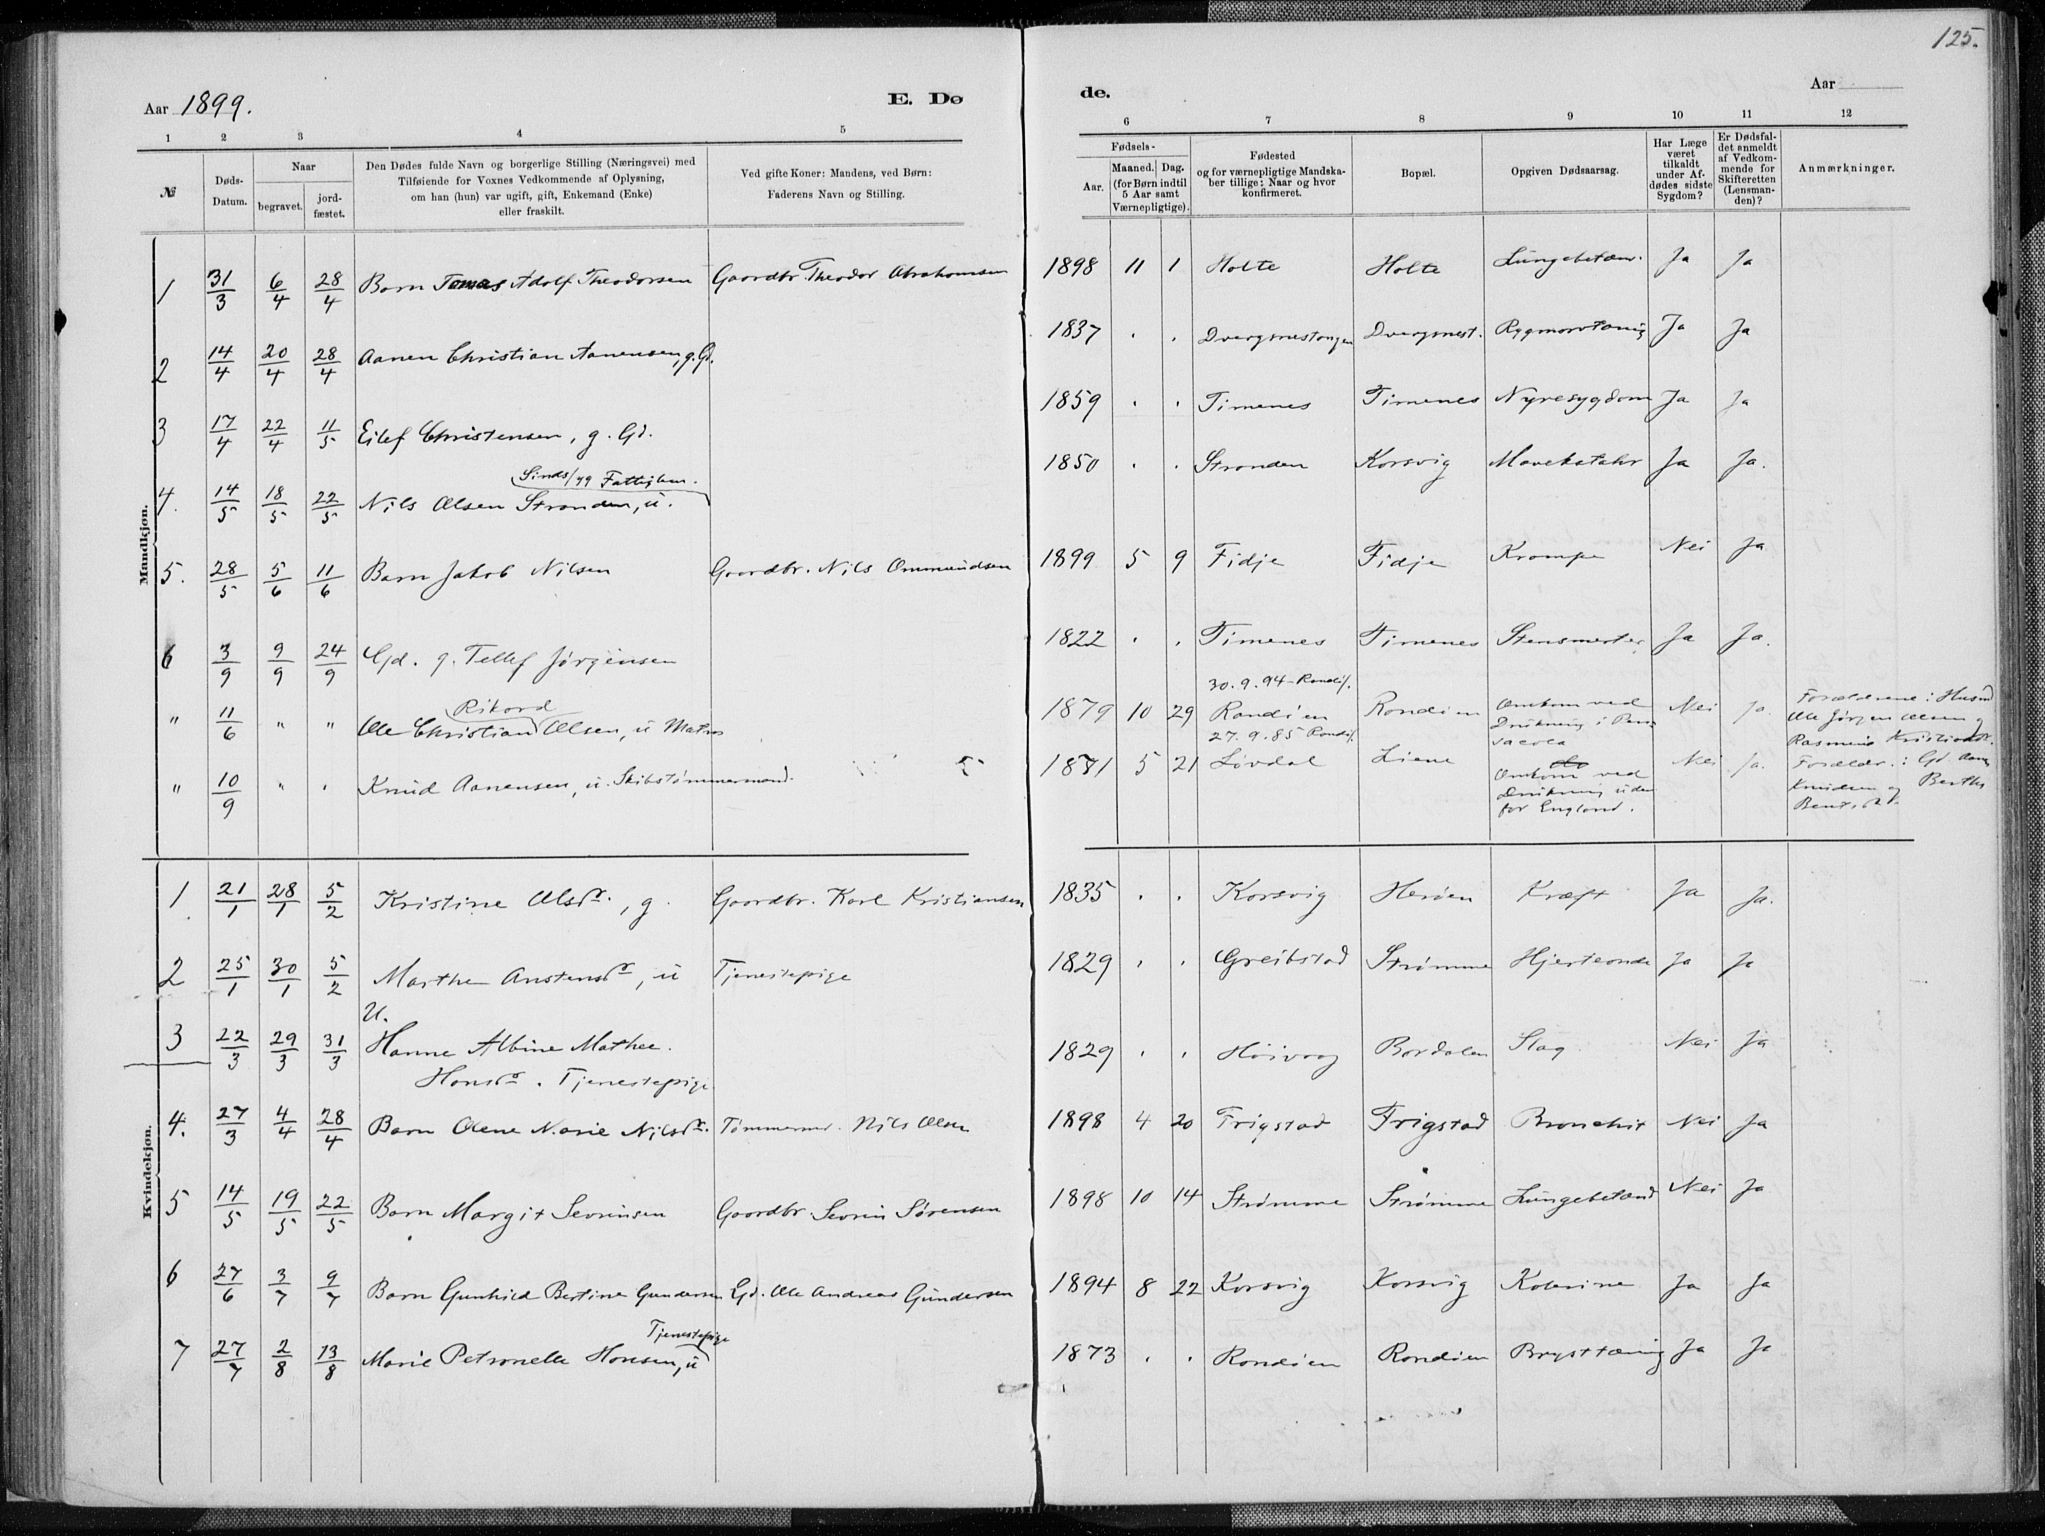 125.
Aar 1899.
E. Dø
de.
Aar
1 2 3 4 5
6 7 8 9 10 11 12
№
Døds-Datum.
Naar
begravet.
jordfæstet.
Den Dødes fulde Navn og borgerlige Stilling (Næringsvei) med
Tilføiende for Voxnes Vedkommende af Oplysning,
om han (hun) var ugift, gift, Enkemand (Enke)
eller fraskilt.
Ved gifte Koner: Mandens, ved Børn:
Faderens Navn og Stilling.
Fødsels-
Aar.
Maaned. Dag.
(for Børn indtil
5 Aar samt
Værnepligtige).
Fødested
og for værnepligtige Mandska-
ber tillige: Naar og hvor
konfirmeret.
Bopæl.
Opgiven Dødsaarsag.
Har Læge
været
tilkaldt
under Af-
dødes sidste
Sygdom?
Er Dødsfal-
det anmeldt
af Vedkom-
mende for
Skifteretten
(Lensman-
den)?
Anmærkninger.
Mandkjøn.
1 31/3 6/4 28/4 Barn Tomas Adolf Theodorsen Gaardbr. Theodor Abrahamsen 1898 11 1 Holte Holte Lungebetæn. Ja Ja
2 14/4 20/4 28/4 Aanen Christian Aanensen, g. Gd. 1837 . . Dvergsnestangen Dvergsnest. Rygmarvtæring Ja Ja
3 17/4 22/4 11/5 Eilef Christensen, g. Gd. 1859 . . Timenes Timenes Nyresygdom Ja Ja
Sinds/yg Fattiglem.
4. 14/5 18/5 22/5 Nils Olsen Stranden, u. 1850 . . Stranden Korsvig Mavekatahr Ja Ja.
5. 28/5 5/6 11/6 Barn Jakob Nilsen Gaardbr. Nils Ommundsen 1899 5 9 Fidje Fidje Krampe Nei Ja
6 3/9 9/9 24/9 Gd. g. Tellef Jørgensen 1822 . . Timenes Timenes Stensmerter Ja Ja.
" 11/6 " " Ole Christian Rikard Olsen, u Matros 1879 10 29 30.9.94 - Randø k. Randøen Randøen Omkom ved Drukning i Pensacola Nei Ja. Forældrene: Husmd Ole Jørgen Olsen og Rasmine Kristiansd.
" 10/9 " " Knud Aanensen, u. Skibstømmermand. 1871 5 21 27.9.85 Randø k. Løvdal Liene Omkom ved Drukning uden for England. Nei Ja. Forældr.: Gd Aanen Knudsen og Berthe Bentsd.
Kvindekjøn.
1. 21/1 28/1 5/2 Kristine Olsdr., g. Gaardbr. Karl Kristiansen 1835 . . Korsvig Herøen Kræft Ja Ja.
2 25/1 30/1 5/2 Marthe Anstensdr, u Tjenestepige 1829 . . Greibstad Strømme Hjerteonde Ja Ja
U.
3 22/3 29/3 31/3 Hanne Albine Mathee. 1829 . . Høivaag Bordalen Slag Nei Ja
Hansdr. Tjenestepige
4. 27/3 4/4 28/4 Barn Olene Marie Nilsdr. Tømmermd. Nils Olsen 1898 4 20 Frigstad Frigstad Bronchit Nei Ja
5 14/5 19/5 22/5 Barn Margit Sevrinsen Gaardbr. Sevrin Sørensen 1898 10 14 Strømme Strømme Lungebetænd Nei Ja
6 27/6 3/7 9/7 Barn Gunhild Bertine Gundersen Gd. Ole Andreas Gundersen 1894 8 22 Korsvig Korsvig Kolerine Ja Ja
Tjenestepige
7 27/7 2/8 13/8 Marie Petronelle Hansen, u 1873 . . Randøen Randøen Brysttæring Ja Ja